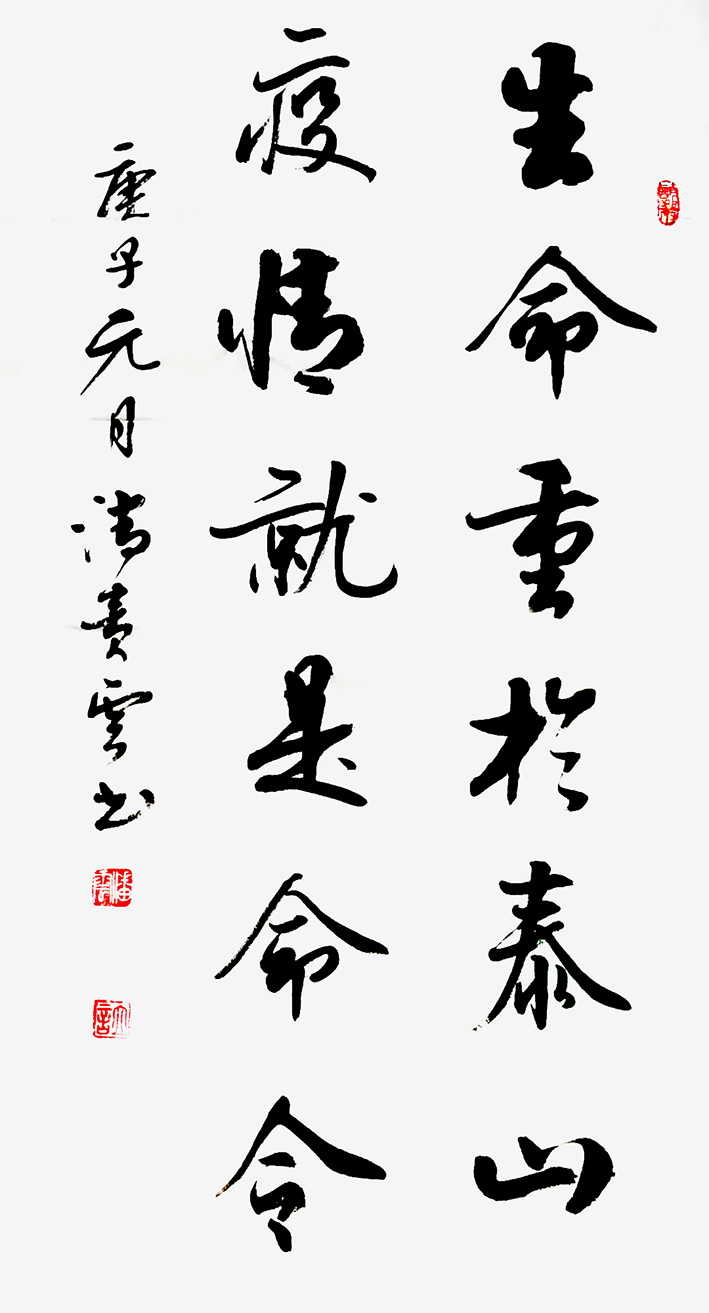 生命重於泰山
疫情就是命令
庚子元月 雲书